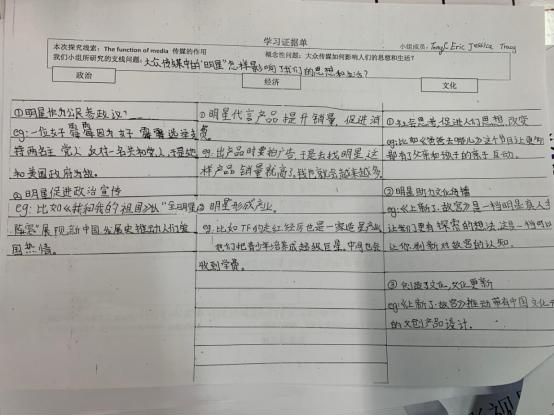 学习证据单
本次探究线索：The function of media 传媒的作用
概念性问题：大众传媒如何影响人们的思想和生活？
小组成员：Tony Eric Jessica Tracy
我们小组所研究的支线问题：大众传媒中的"明星"怎样影响了我们的思想和生活？
政治
经济
文化
①明星作为公民参政议
eg：一位女子
持两名主党人，反对一名共和党人，于是她
和美国政府为敌。
②明星促进政治宣传
eg：比如《我和我的祖国》以"全明星
阵容"展现新中国发展史推动人们爱
国热情。
①明星代言产品提升销量，促进消
费。
eg：出产品时要拍广告，于是去找明星，这
样产品销量就高了，
②明星形成产业。
eg：比如TF的走红经历也是一家造星产业
他们把青少年培养成超级巨星，中间也会
收到学费。
①社会思考，促进人们思想改变
eg：比如《爸爸去哪儿》这个节目让更多
都有了父亲和孩子的亲子互动。
②明星助力文化传播
eg：《上新了·故宫》是一档明星真人
让我们更有探索的想法，这是一档可以
让你刷新对故宫的认知。
③创造了文化，文化更新
eg：《上新了·故宫》推动带有中国文化
的文创产品设计。